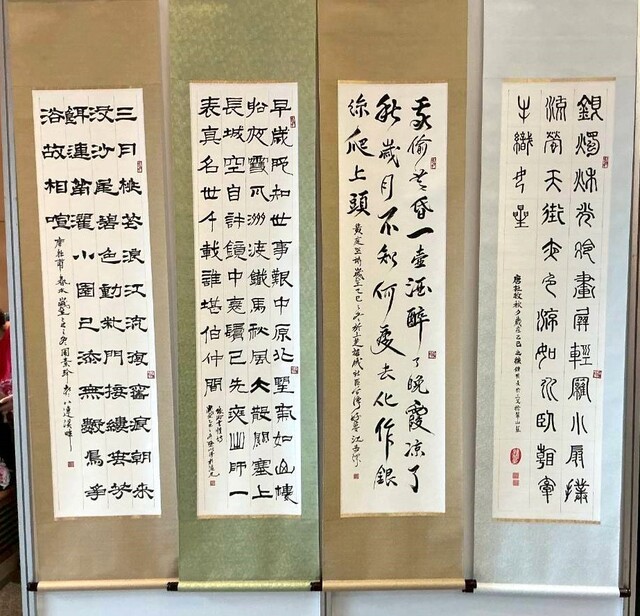 銀燭秋光冷畫屏輕羅小扇撲
流螢天街夜色涼如水臥看牽
牛織女星
唐杜牧秋夕歲在乙巳
我偷黃昏一壺酒醉了晚霞涼了
秋歲月不知何處去化作銀
絲爬上頭
早歲那知世事艱中原北望氣如山樓
船夜雪瓜洲渡鐵馬秋風大散關塞上
長城空自許鏡中衰鬢已先斑出師一
表真名世千載誰堪伯仲間
三月桃花浪江流復舊痕朝來
沒沙尾碧色動柴門接縷垂芳
餌連筒灌小園已添無數鳥爭
浴故相喧
唐杜甫春水